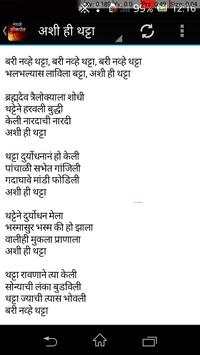 99% 12:16
अशी ही थट्टा
बरी नव्हे थट्टा, बरी नव्हे थट्टा, बरी नव्हे थट्टा
भलभल्यास लाविला बट्टा, अशी ही थट्टा
ब्रह्मदेव त्रैलोक्याला शोधी
थट्टेने हरवली बुद्धी
केली नारदाची नारदी
अशी ही थट्टा
थट्टा दुर्योधनानं ही केली
पांचाळी सभेत गांजिली
गदाघावे मांडी फोडिली
अशी ही थट्टा
थट्टेने दुर्योधन मेला
भस्मासुर भस्म की हो झाला
वालीही मुकला प्राणाला
अशी ही थट्टा
थट्टा रावणाने त्या केली
सोन्याची लंका बुडविली
थट्टा ज्याची त्यास भोवली
बरी नव्हे थट्टा